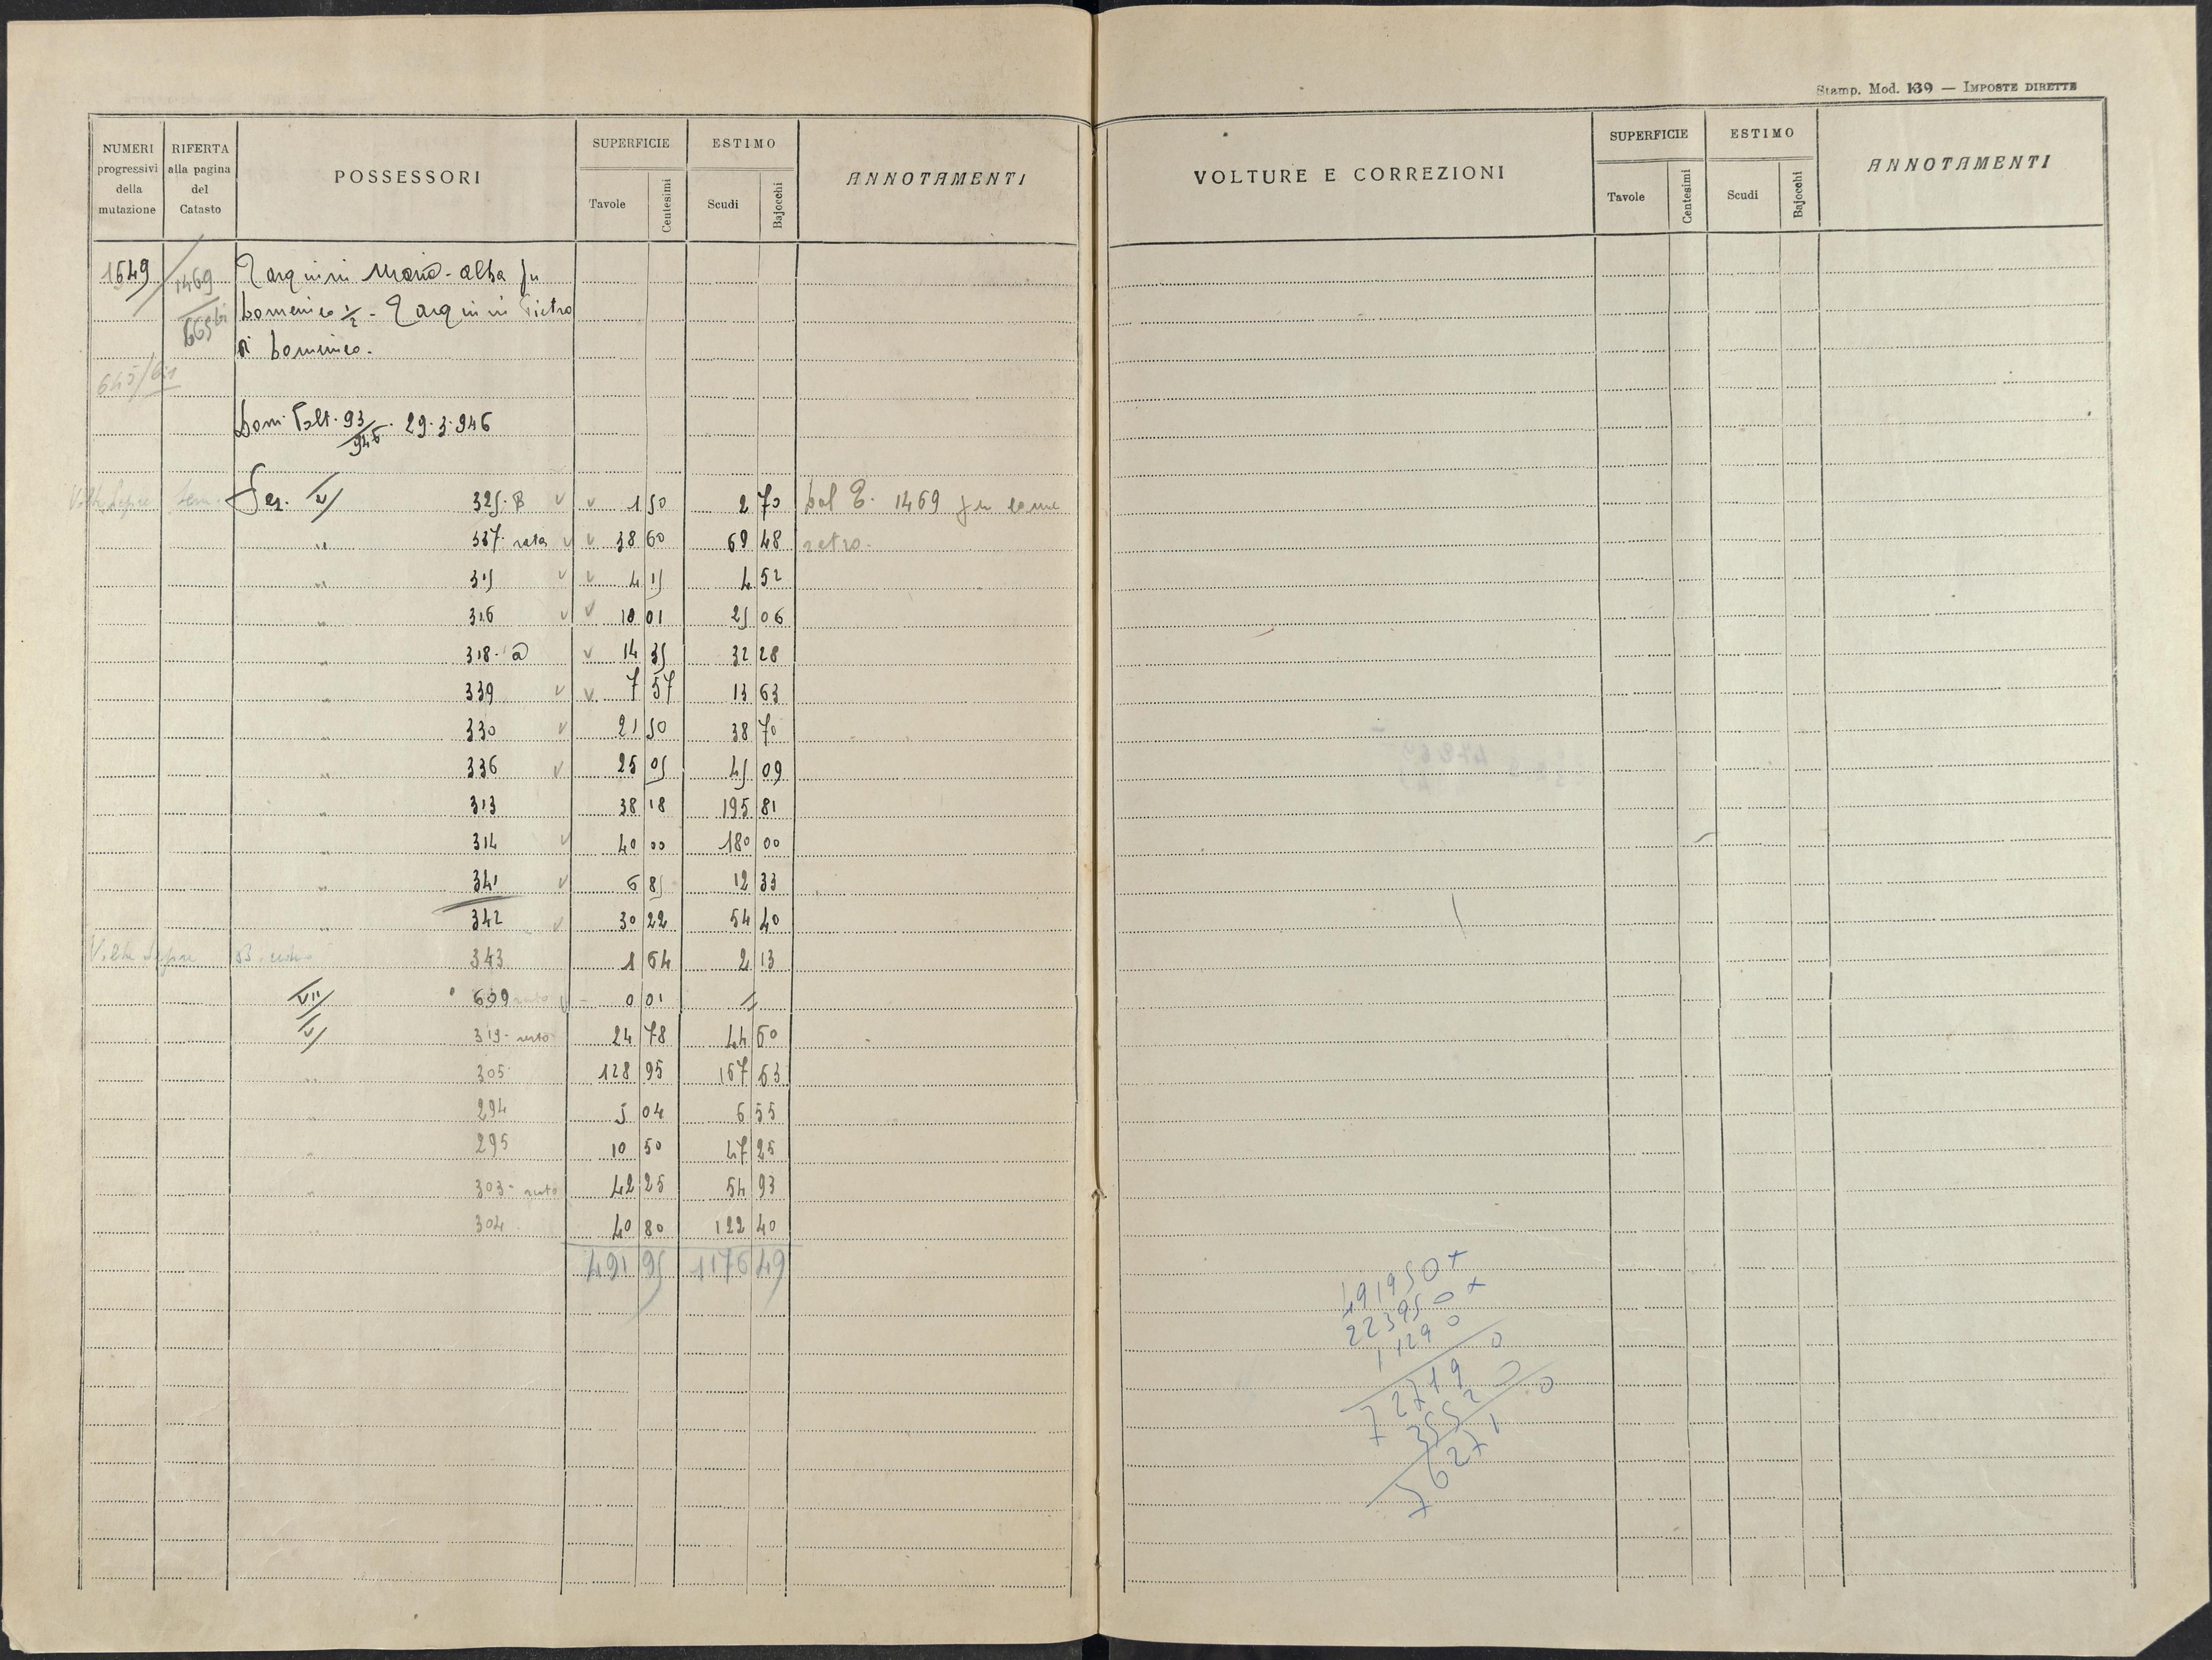 Stamp. Mod. 139 — IMPOSTE DIRETTE
NUMERI progressivi della mutazione
RIFERTA alla pagina del Catasto
POSSESSORI
SUPERFICIE
Tavole
Centesimi
ESTIMO
Scudi
Bajocchi
ANNOTAMENTI
VOLTURE E CORREZIONI
SUPERFICIE
Tavole
Centesimi
ESTIMO
Scudi
Bajocchi
ANNOTAMENTI
1549 1469 Tarquini Maria-Alba fu
665 bis Domenico 1/2 - Tarquini Pietro
di Domenico.
645/61
Dom. Volt. 93/946. 29.3.946
Sez. IV 325. B v v 1 50 2 70 Dal P. 1469 fu come
" 337. rata v v 38 60 69 48 retro.
" 315 v v 4 15 4 52
" 316 v v 18 01 25 06
" 318. a v 14 35 32 28
" 339 v v 7 57 13 63
" 330 v 21 50 38 70
" 336 v 25 05 45 09
" 313 38 18 195 81
" 314 v 40 00 180 00
" 341 v 6 85 12 33
" 342 v 30 22 54 40
343 1 64 2 13
VII 609 v 0 01 "
IV 319. resto 24 78 44 60
" 305 128 95 167 63
" 294 5 04 6 55
" 295 10 50 47 25
" 303. resto 42 25 54 93
" 304 40 80 122 40
491 95 1176 49
491950 +
223950 +
11290
727190
35520
762710